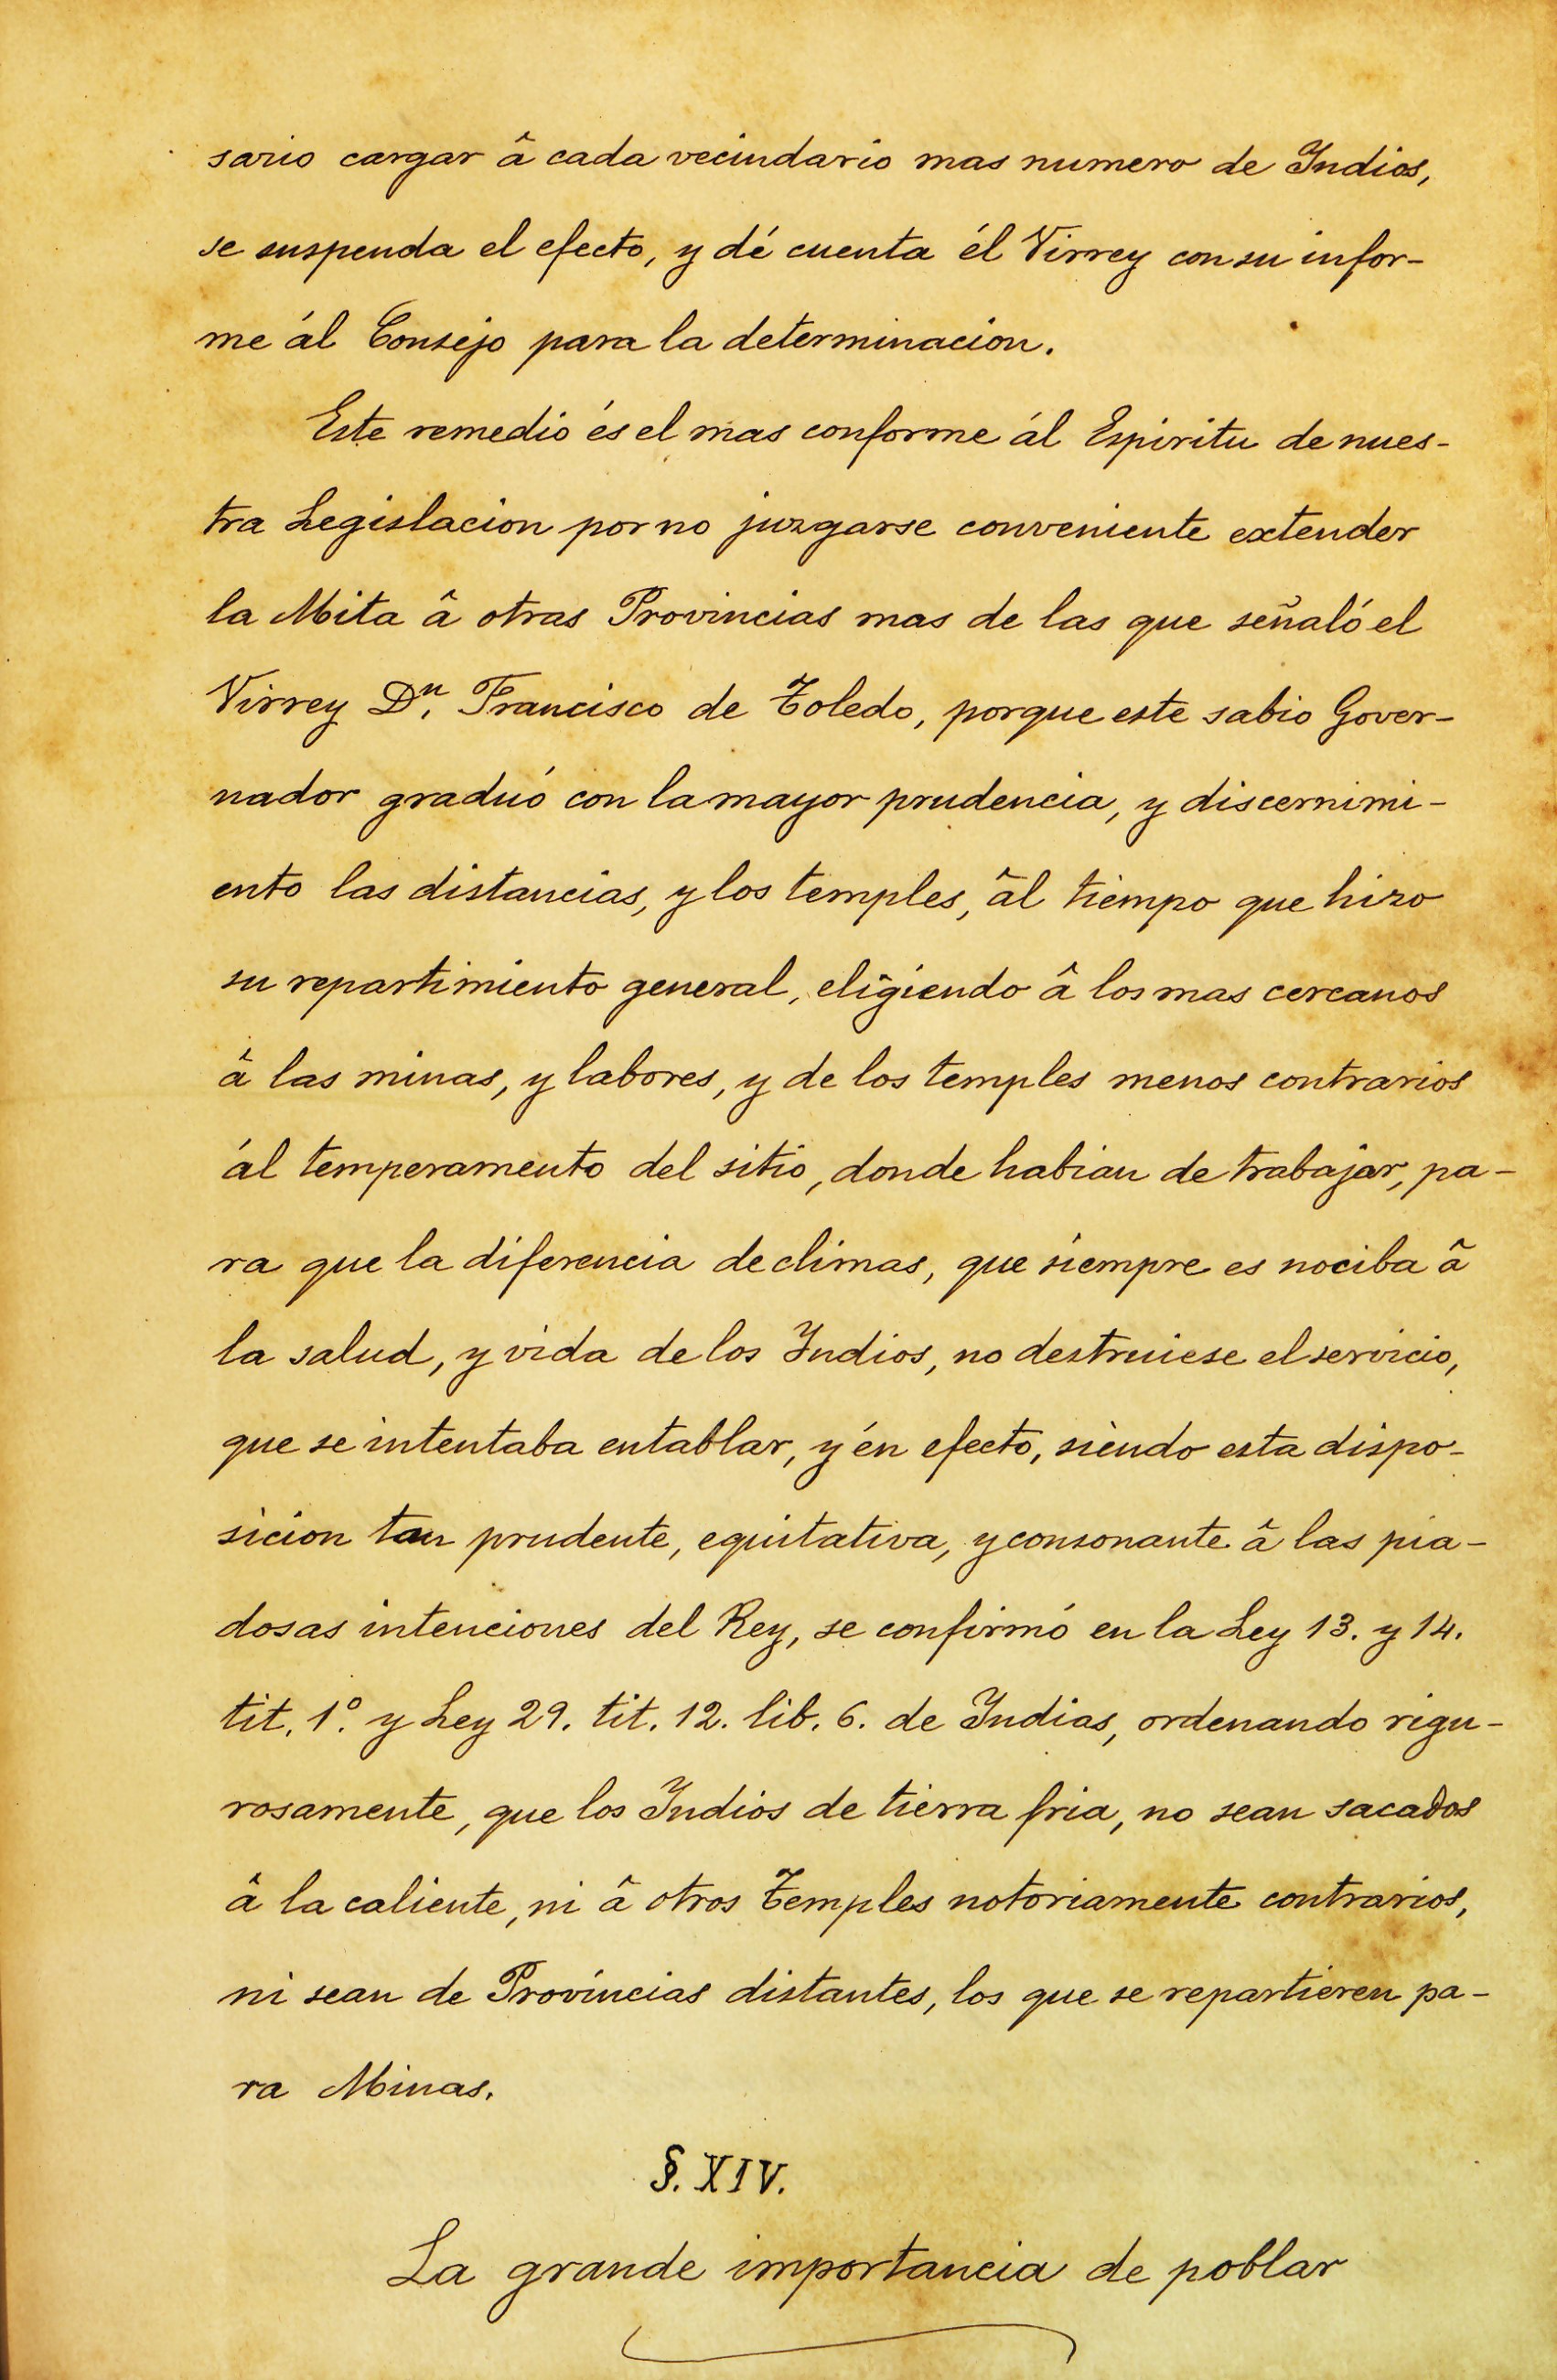 sario cargar â cada vecindario mas numero de Indios,
se suspenda el efecto, y dé cuenta él Virrey con su infor-
me ál Consejo para la determinacion.
Este remedio és el mas conforme ál Espiritu de nues-
tra Legislacion por no juzgarse conveniente extender
la Mita â otras Provincias mas de las que señaló el
Virrey Dⁿ. Francisco de Toledo, porque este sabio Gover-
nador graduó con la mayor prudencia, y discernimi-
ento las distancias, y los temples, âl tiempo que hizo
su repartimiento general, eligiendo â los mas cercanos
â las minas, y labores, y de los temples menos contrarios
ál temperamento del sitio, donde habian de trabajar, pa-
ra que la diferencia de climas, que siempre es nociba â
la salud, y vida de los Indios, no destruiese el servicio,
que se intentaba entablar, y én efecto, siendo esta dispo-
sicion tan prudente, equitativa, y consonante â las pia-
dosas intenciones del Rey, se confirmó en la Ley 13. y 14.
tit. 1º. y Ley 29. tit. 12. lib. 6. de Indias, ordenando rigu-
rosamente, que los Indios de tierra fria, no sean sacados
â la caliente, ni â otros Temples notoriamente contrarios,
ni sean de Provincias distantes, los que se repartieren pa-
ra Minas.
§. XIV.
La grande importancia de poblar